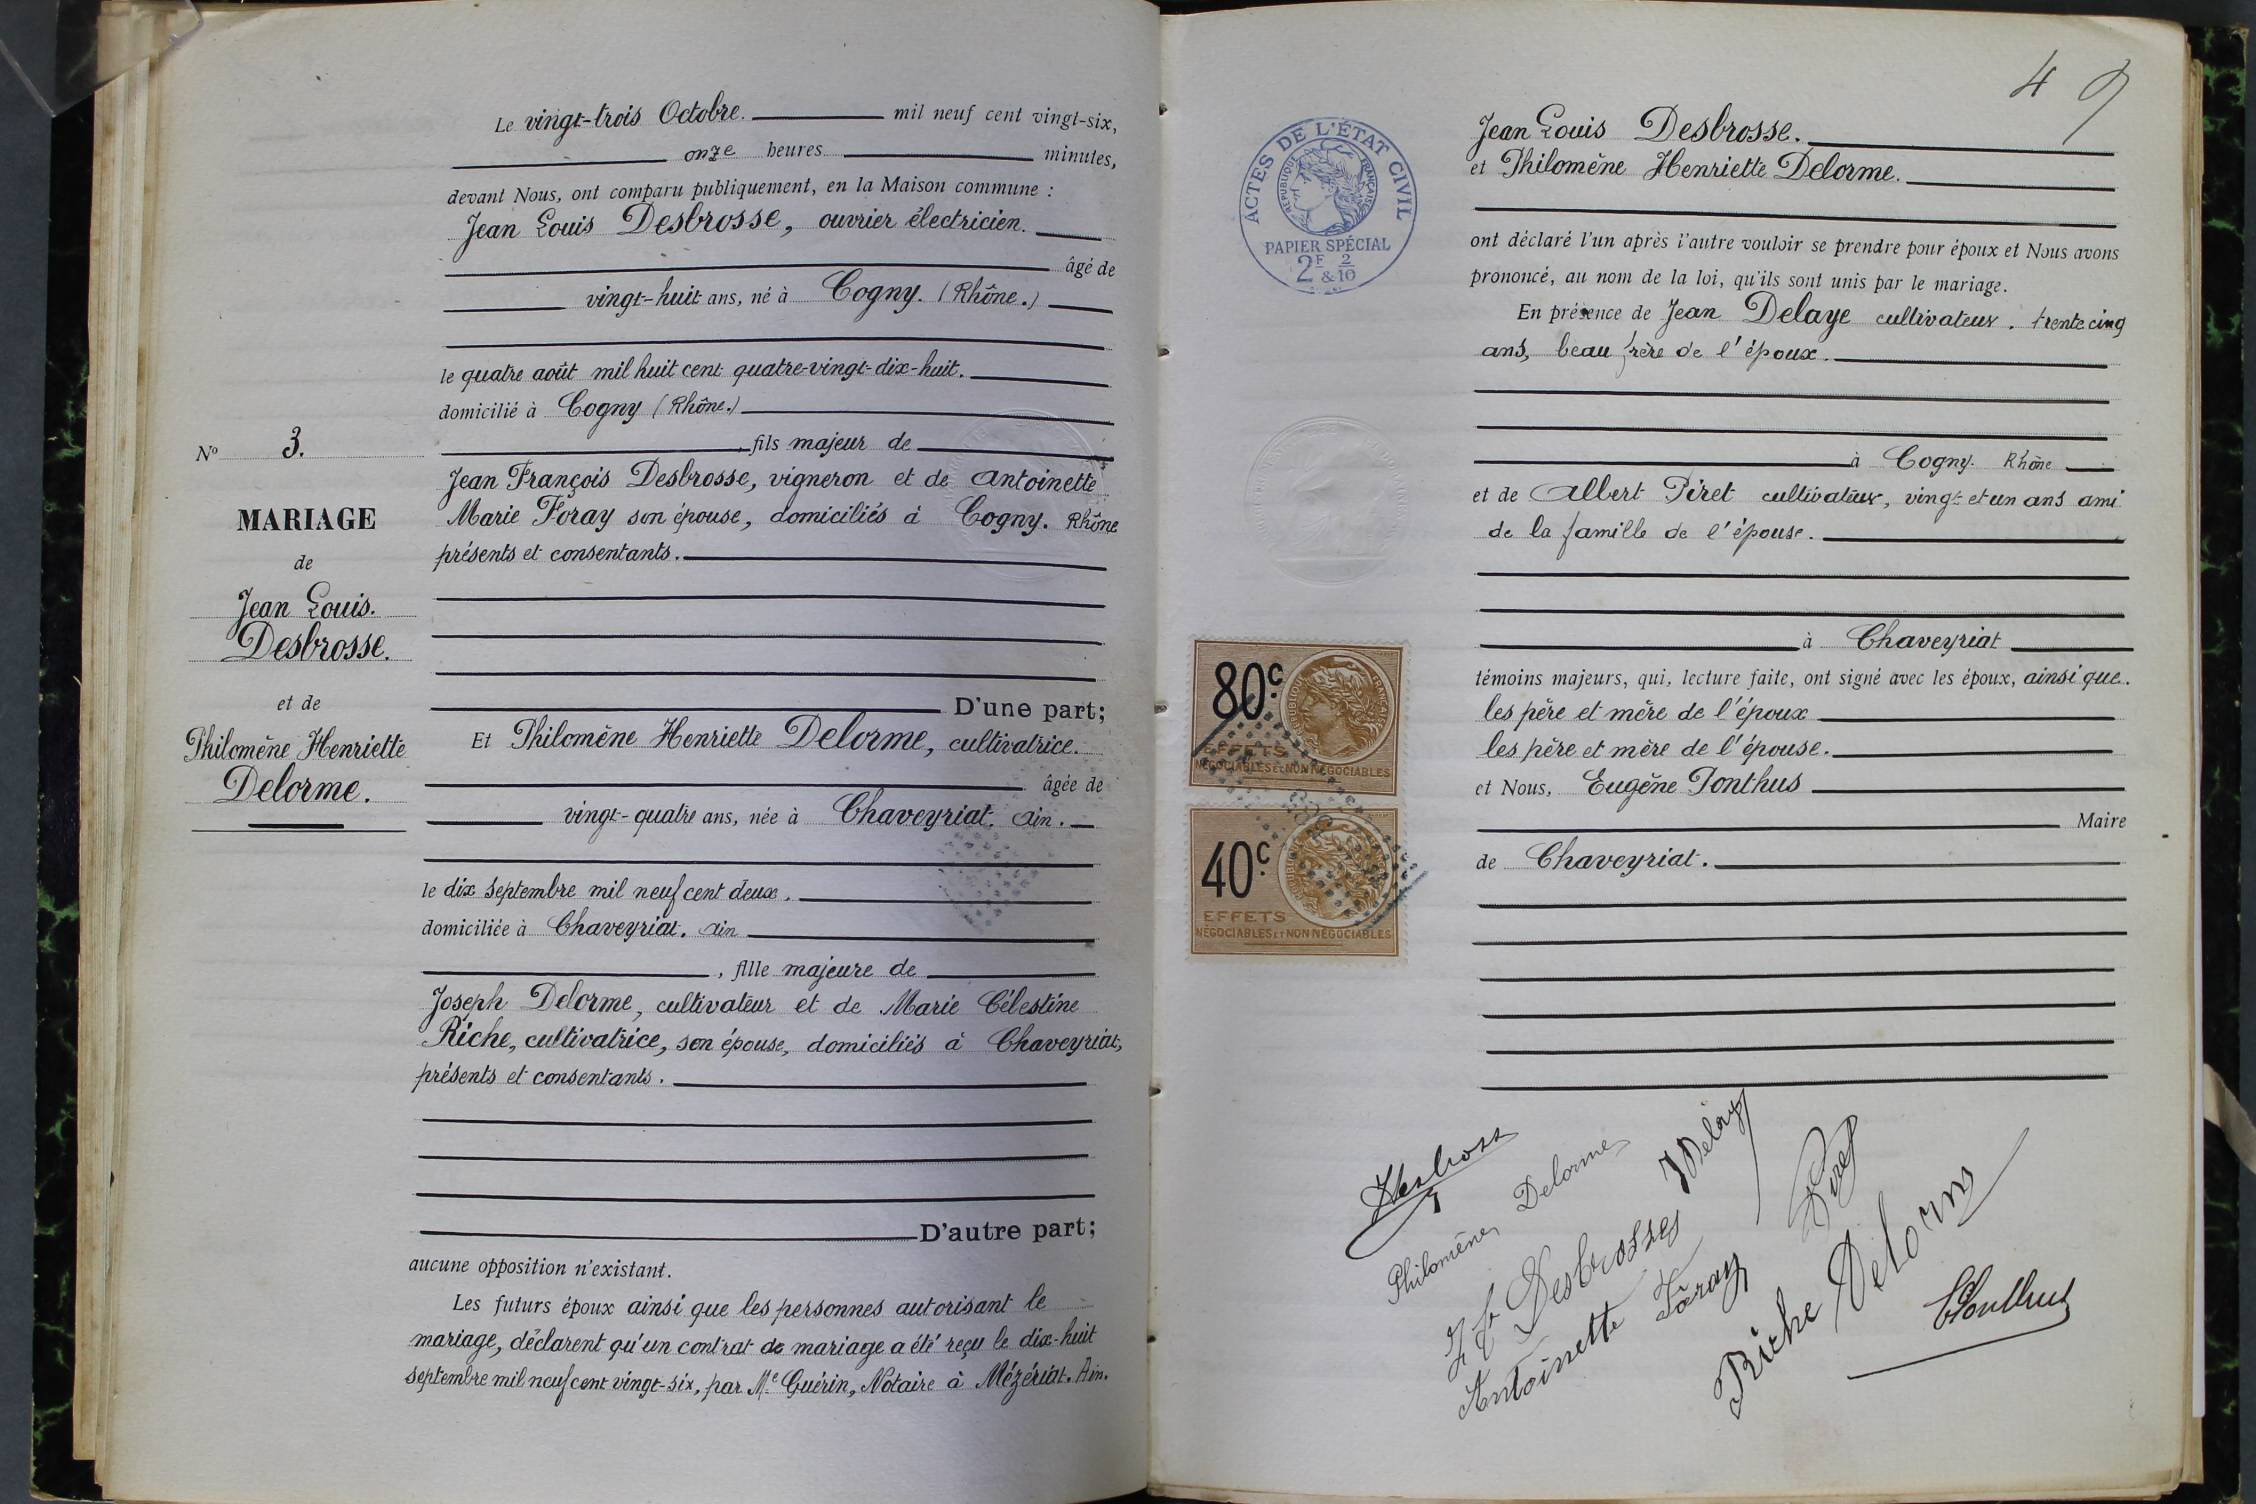 Le vingt-trois Octobre. mil neuf cent vingt-six,
onze heures minutes,
devant Nous, ont comparu publiquement, en la Maison commune :
Jean Louis Desbrosse, ouvrier électricien.
âgé de
vingt-huit ans, né à Cogny. (Rhône.)
le quatre août mil huit cent quatre-vingt-dix-huit.
domicilié à Cogny (Rhône.)
, fils majeur de
Jean François Desbrosse, vigneron et de Antoinette
Marie Foray son épouse, domiciliés à Cogny. Rhône
présents et consentants.
D'une part;
Et Philomène Henriette Delorme, cultivatrice.
âgée de
vingt-quatre ans, née à Chaveyriat. Ain.
le dix septembre mil neuf cent deux.
domiciliée à Chaveyriat. Ain
, fille majeure de
Joseph Delorme, cultivateur et de Marie Célestine
Riche, cultivatrice, son épouse, domiciliés à Chaveyriat,
présents et consentants.
D'autre part;
aucune opposition n'existant.
Les futurs époux ainsi que les personnes autorisant le
mariage, déclarent qu'un contrat de mariage a été reçu le dix-huit
septembre mil neuf cent vingt-six, par Me Guérin, Notaire à Mézériat. Ain.
No 3.
MARIAGE
de
Jean Louis.
Desbrosse.
et de
Philomène Henriette
Delorme.
4
Jean Louis Desbrosse.
et Philomène Henriette Delorme.
ont déclaré l'un après l'autre vouloir se prendre pour époux et Nous avons
prononcé, au nom de la loi, qu'ils sont unis par le mariage.
En présence de Jean Delaye cultivateur. trente cinq
ans, beau frère de l'époux.
à Cogny. Rhône
et de Albert Piret cultivateur, vingt et un ans ami
de la famille de l'épouse.
à Chaveyriat
témoins majeurs, qui, lecture faite, ont signé avec les époux, ainsi que.
les père et mère de l'époux
les père et mère de l'épouse.
et Nous, Eugène Ponthus
Maire
de Chaveyriat.
ACTES DE L'ÉTAT CIVIL
RÉPUBLIQUE FRANÇAISE
PAPIER SPÉCIAL
2F & 2/10
80c.
RÉPUBLIQUE FRANÇAISE
EFFETS
NÉGOCIABLES ET NON NÉGOCIABLES
40c.
RÉPUBLIQUE FRANÇAISE
EFFETS
NÉGOCIABLES ET NON NÉGOCIABLES
Philomène Delorme
Desbrosses
Antoinette Foray
Piret
Riche Delorme